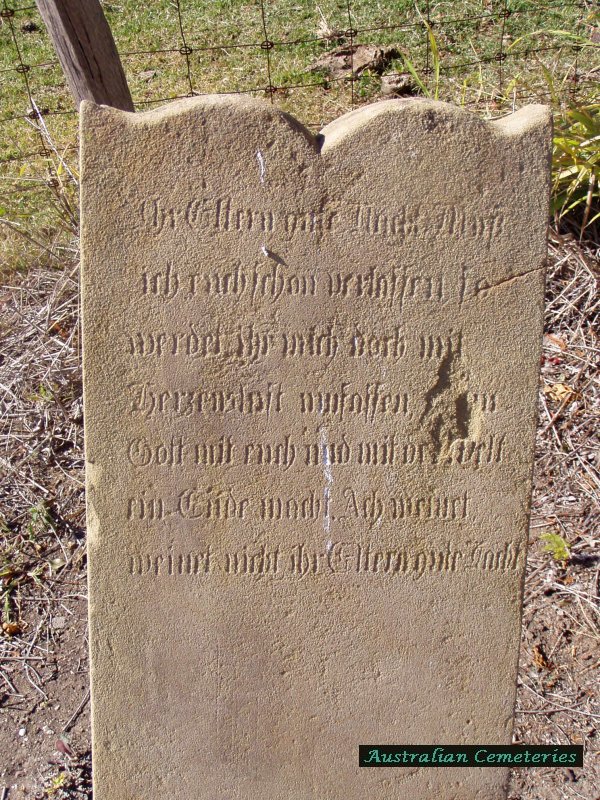 Ihr Eltern gute Nacht. Muß
ich euch schon verlassen so
werdet ihr mich doch mit
Herzenslust umfassen,
Gott mit euch und mit der Welt
ein Ende macht. Ach weinet
weinet nicht ihr Eltern gute Nacht
Australian Cemeteries